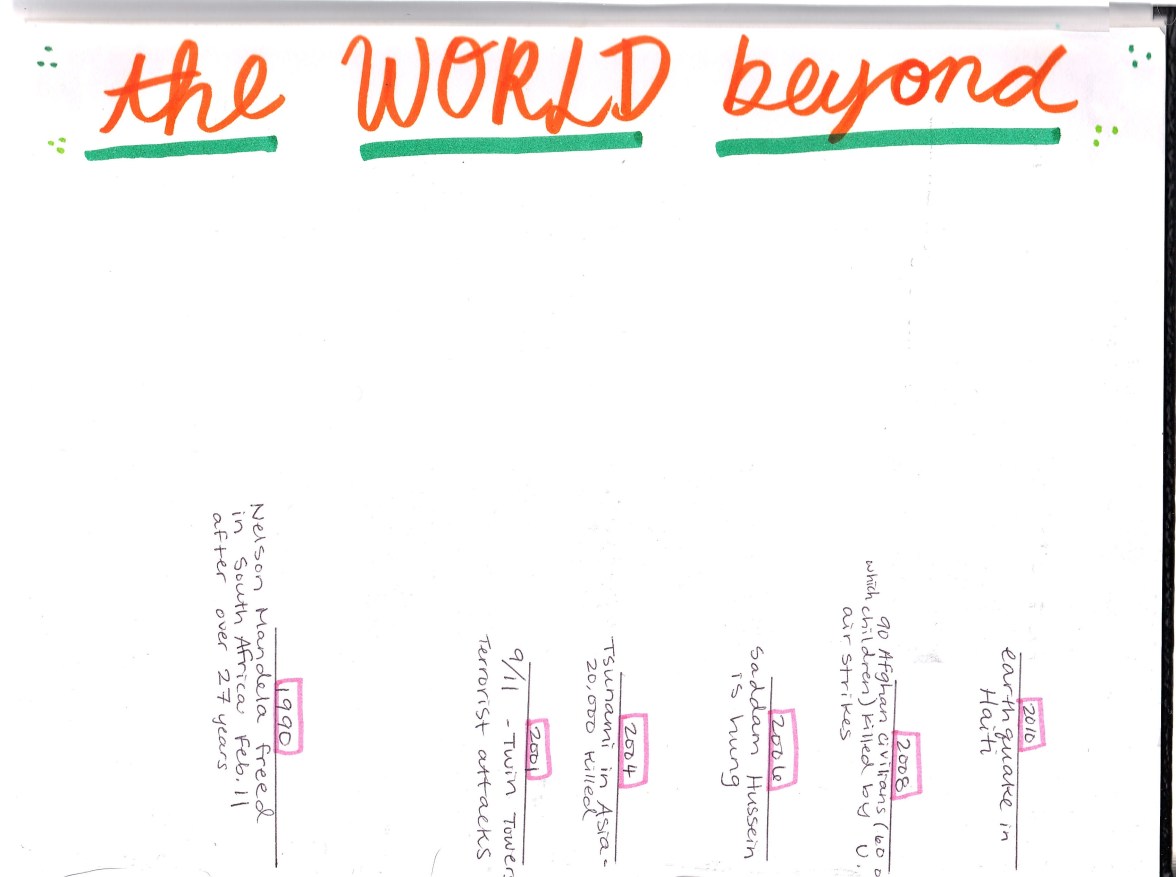 the WORLD beyond
1990
Nelson Mandela freed
in South Africa Feb. 11
after over 27 years
2001
9/11 - Twin Tower
Terrorist attacks
2004
Tsunami in Asia-
20,000 killed
2006
Saddam Hussein
is hung
2008
90 Afghan civilians (60 o
which children) killed by U.
air strikes
2010
earthquake in
Haiti